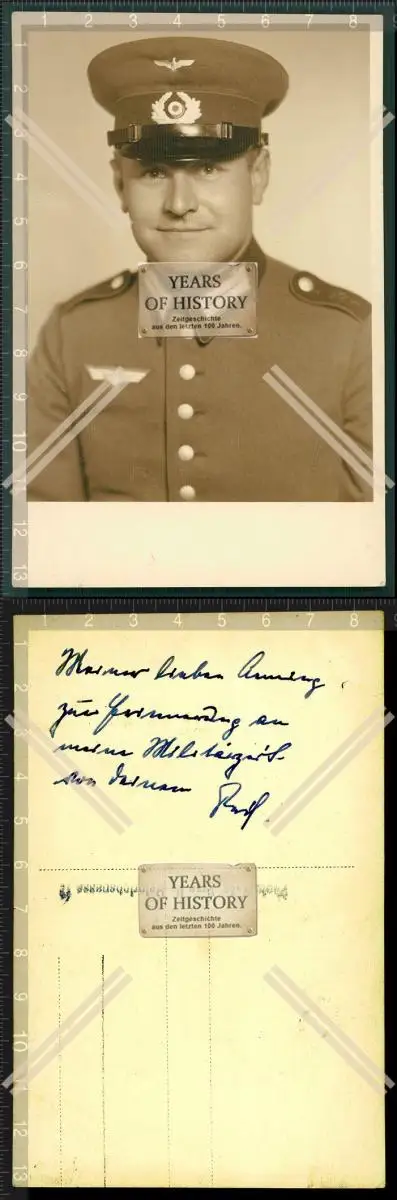 1 2 3 4 5 6 7 8
1
2
3
4
5
6
7
8
9
10
11
12
13
YEARS
OF HISTORY
Zeitgeschichte
aus den letzten 100 Jahren.
1 2 3 4 5 6 7 8
Meiner lieben
zur Erinnerung an
meine Militärzeit
von deinem
YEARS
OF HISTORY
Zeitgeschichte
aus den letzten 100 Jahren.
1
2
3
4
5
6
7
8
9
10
11
12
13